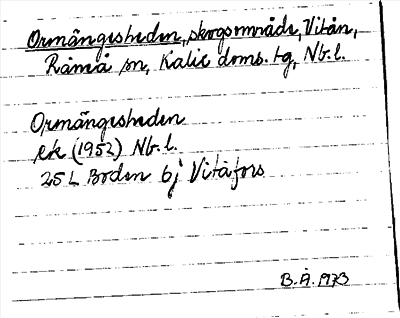 Ormängesheden, skogsområde, Vitån,
Råneå sn, Kalix doms. tg, Nb. l.
Ormängesheden
ek (1952) Nb. l.
25 L Boden 6j Vitåfors
B. Å. 1973